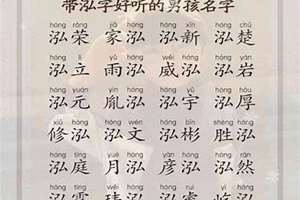 带泓字好听的男孩名字
hóng róng jiā hóng hóng xīn hóng chǔ
泓荣 家泓 泓新 泓楚
hóng lì yǔ hóng wēi hóng hóng yán
泓立 雨泓 威泓 泓岩
hóng yuán yìn hóng hóng yǔ hóng hòu
泓元 胤泓 泓宇 泓厚
xiū hóng hóng wén hóng bīn shèng hóng
修泓 泓文 泓彬 胜泓
hóng tíng yuè hóng yàn hóng hóng rán
泓庭 月泓 彦泓 泓然
hóng wěi hóng hóng ruì hóng
泓 泓 泓睿 泓